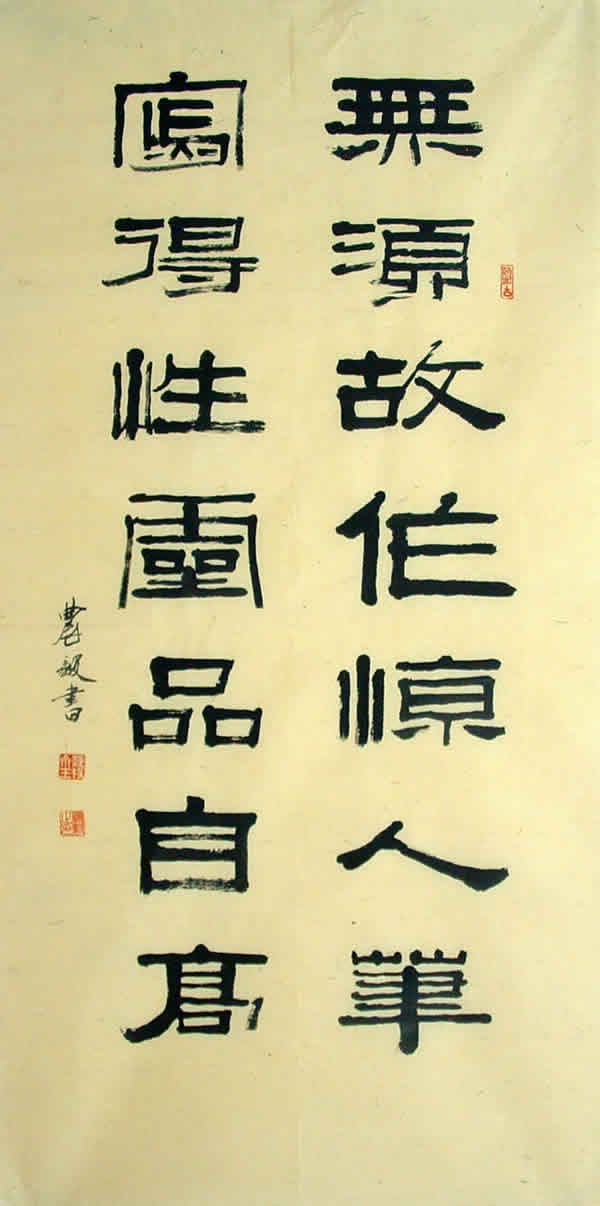 無須故作惊人筆
寫得性靈品自高
農毅書